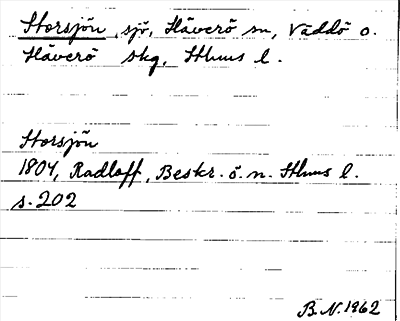 Storsjön, sjö, Häverö sn, Väddö o.
Häverö skg, Sthms l.
Storsjön
1804, Radloff, Beskr. ö. n. Sthms l.
s. 202
B.N. 1962